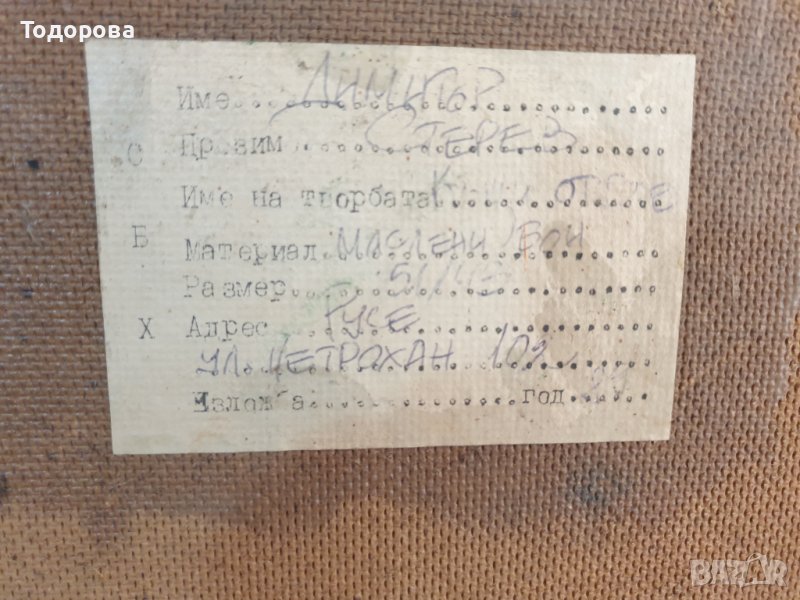 Тодорова
Име Димитър
С Презим Стерев
Име на творбата Къщи
Б Материал Маслени бои
Размер 51/43
Х Адрес Русе
ул. Петрохан 109
Изложба год.
BAZAR